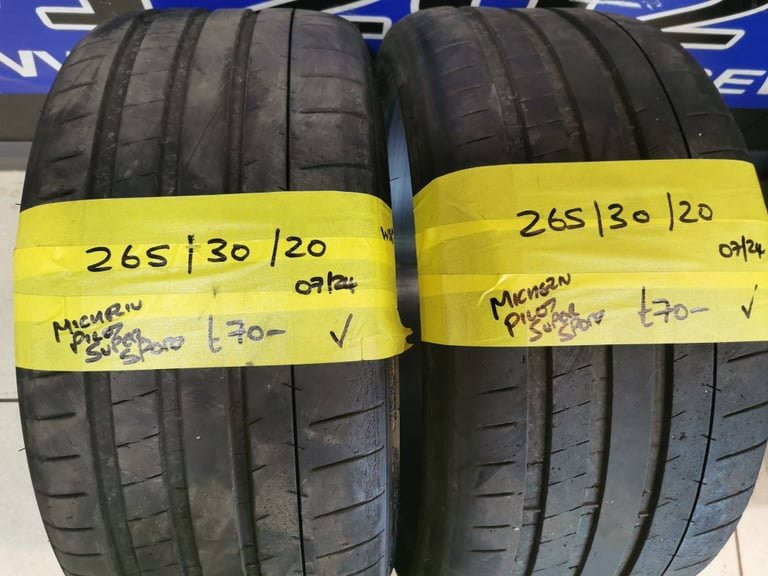 265/30/20
07/24
MICHELIN
PILOT
SUPER
SPORT
£70-
✓
265/30/20
07/24
MICHELIN
PILOT
SUPER
SPORT
£70-
✓